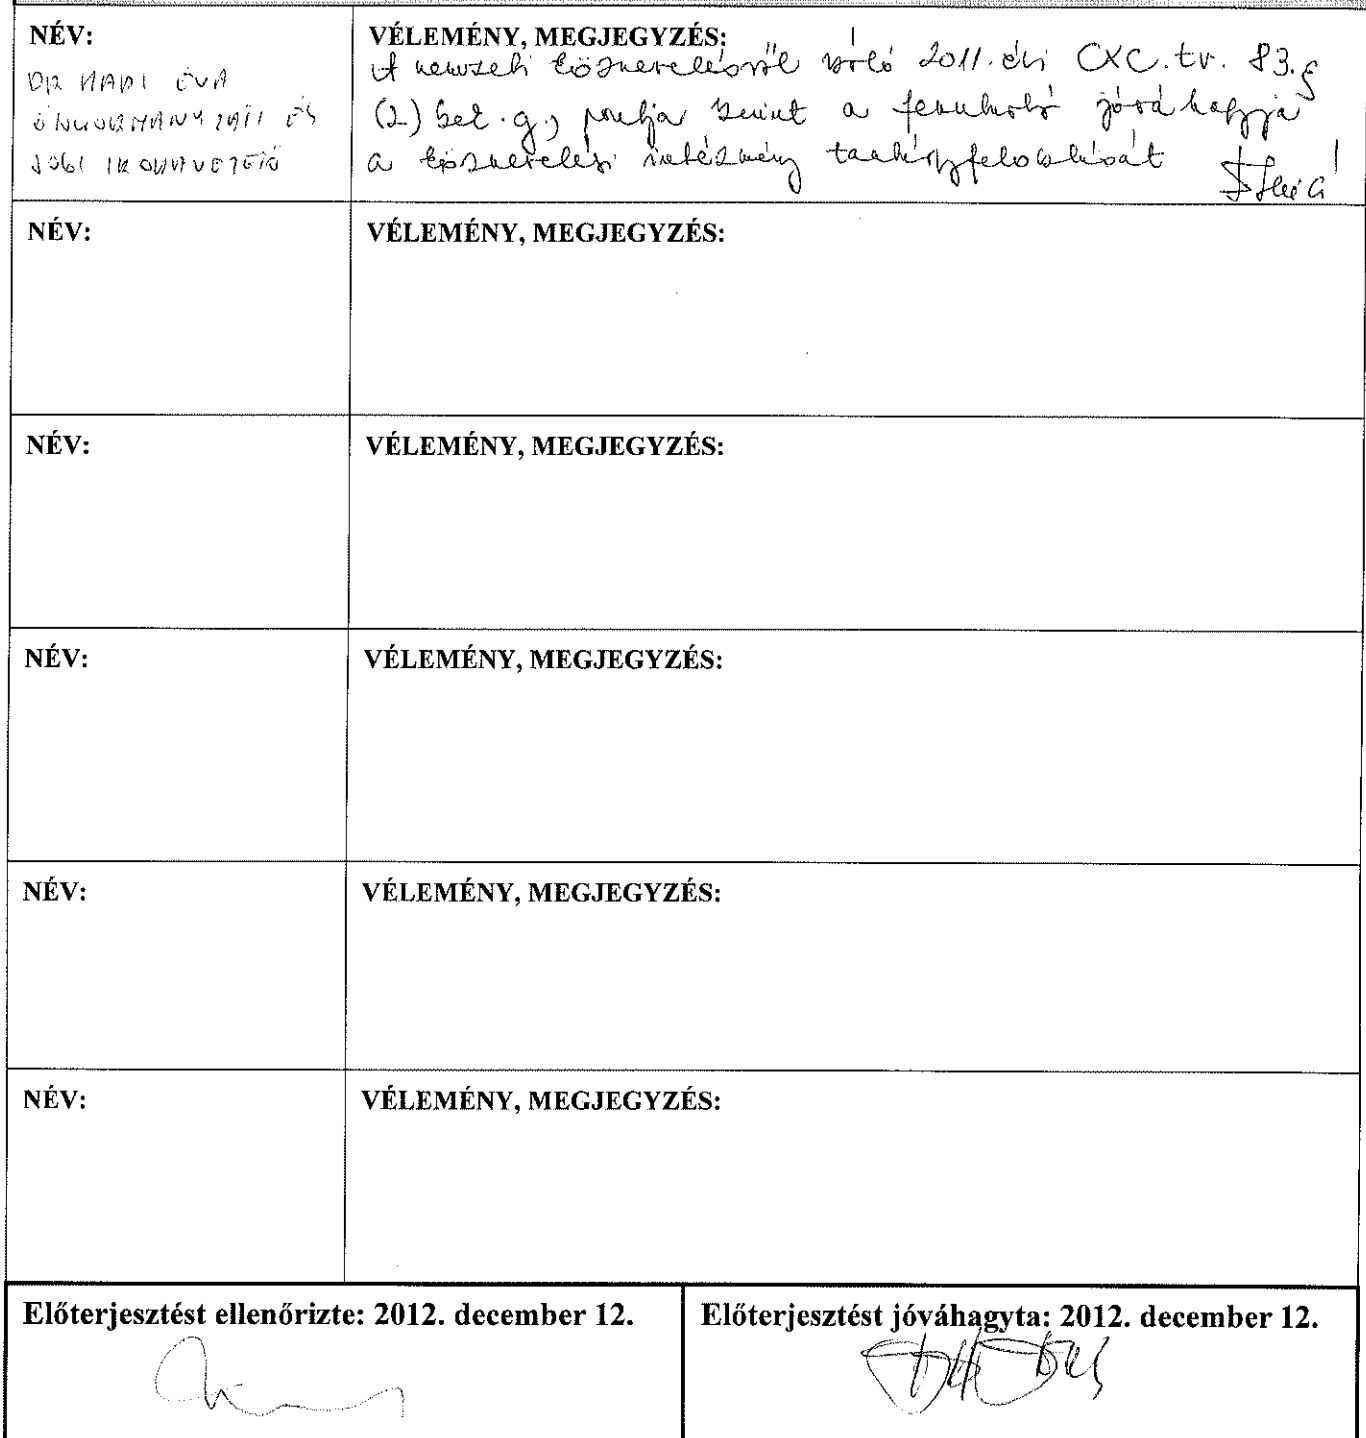 NÉV:
DR NÁDI ÉVA
ÖNKORMÁNYZATI ÉS
JOGI IRODAVEZETŐ
VÉLEMÉNY, MEGJEGYZÉS:
A nemzeti köznevelésről szóló 2011. évi CXC. tv. 83.§
(2) bek. g., pontja szint a fenntartó jóváhagyja
a köznevelési intézmény tantárgyfelosztását
NÉV:
VÉLEMÉNY, MEGJEGYZÉS:
NÉV:
VÉLEMÉNY, MEGJEGYZÉS:
NÉV:
VÉLEMÉNY, MEGJEGYZÉS:
NÉV:
VÉLEMÉNY, MEGJEGYZÉS:
NÉV:
VÉLEMÉNY, MEGJEGYZÉS:
Előterjesztést ellenőrizte: 2012. december 12.
Előterjesztést jóváhagyta: 2012. december 12.